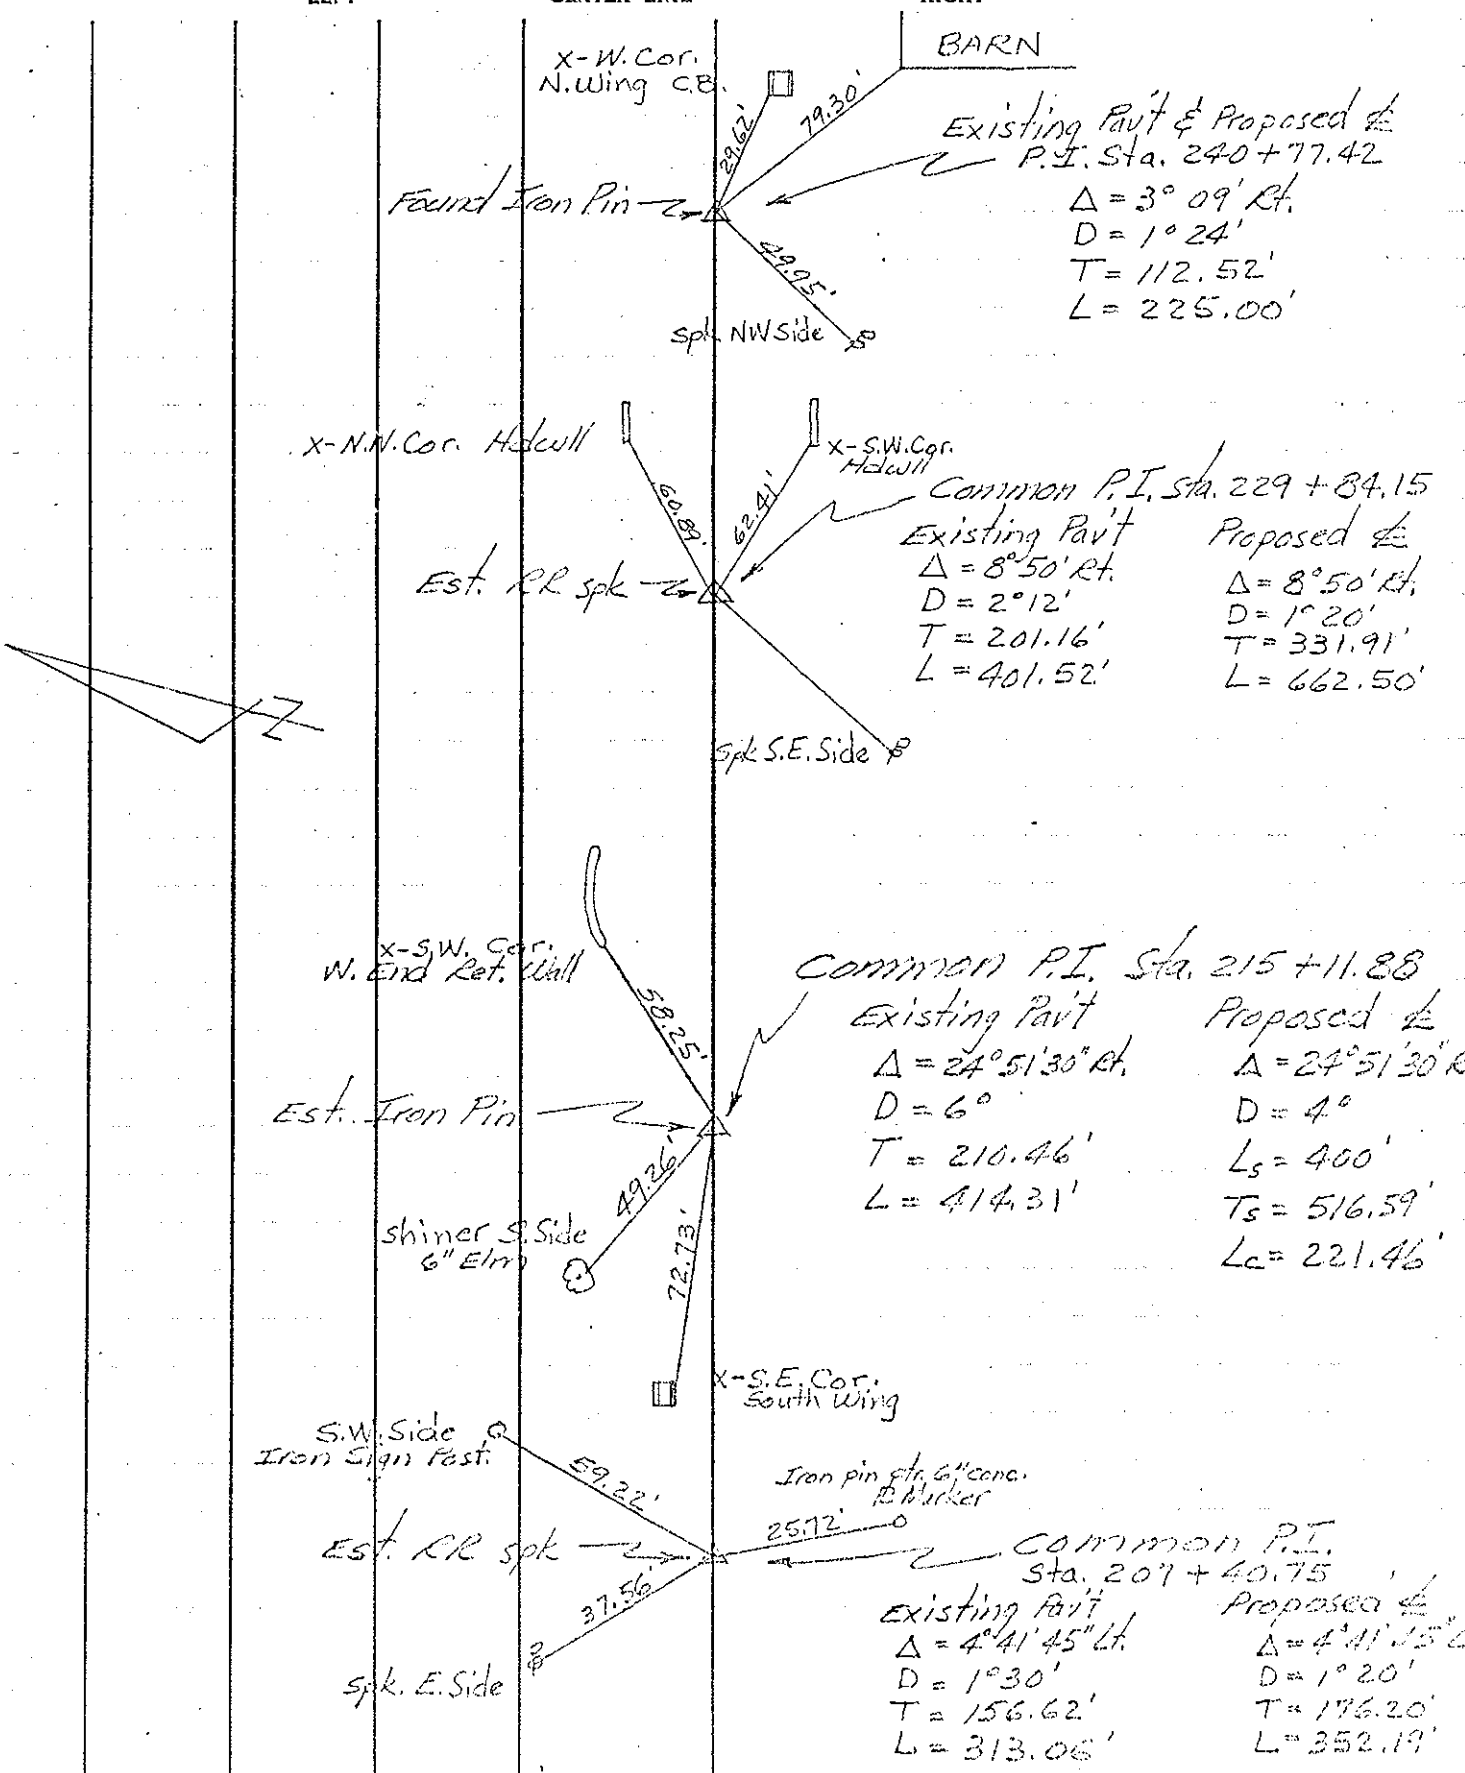 BARN
x-W. Cor.
N. Wing C.B.
29.62'
79.30'
Existing Pav't & Proposed ℄
P.I. Sta. 240+77.42
Δ = 3° 09' Rt.
D = 1° 24'
T = 112.52'
L = 225.00'
Found Iron Pin
49.95'
spk NW Side
x-N.N. Cor. Hdwll
x-S.W. Cor.
Hdwll
60.89'
62.41'
Common P.I. Sta. 229+84.15
Existing Pav't
Δ = 8°50' Rt.
D = 2°12'
T = 201.16'
L = 401.52'
Proposed ℄
Δ = 8°50' Rt.
D = 1°20'
T = 331.91'
L = 662.50'
Est. RR spk
Z
spk S.E. Side
x-S.W. Cor.
W. End Ret. Wall
58.25'
Common P.I. Sta. 215+11.88
Existing Pav't
Δ = 24°51'30" Rt.
D = 6°
T = 210.46'
L = 414.31'
Proposed ℄
Δ = 24°51'30" R
D = 4°
Ls = 400'
Ts = 516.59'
Lc = 221.46'
Est. Iron Pin
49.26'
72.73'
shiner S. Side
6" Elm
x-S.E. Cor.
South Wing
S.W. Side
Iron Sign Post.
59.22'
Iron pin ctr. 6" conc.
Marker
25.72'
Est. RR spk
37.56'
spk. E. Side
Common P.I.
Sta. 207+40.75
Existing Pav't
Δ = 4°41'45" Lt.
D = 1°30'
T = 156.62'
L = 313.06'
Proposed ℄
Δ = 4°41'45" L
D = 1°20'
T = 176.20'
L = 352.19'